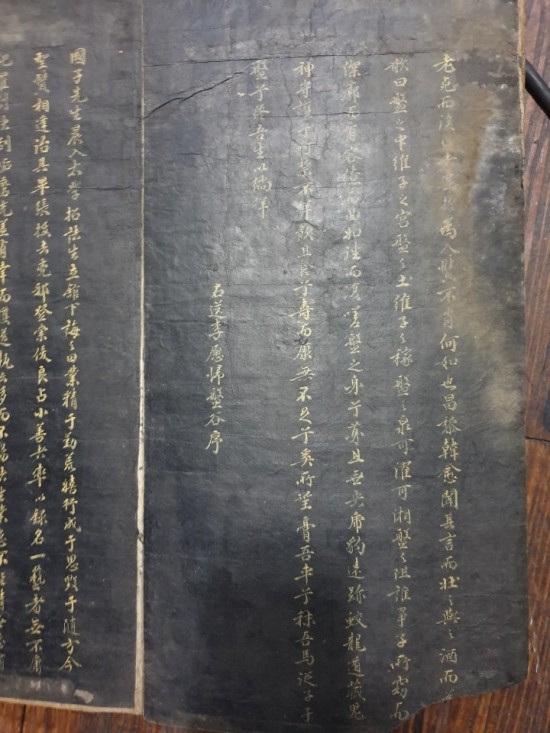 老死而後止者其於為人賢不肖何如也昌黎韓愈聞其言而壯之與之酒而為
歌曰盤之中維子之宮盤之土維子之稼盤之泉可濯可湘盤之阻誰爭子所窈而
深廓其有容繚而曲如往而復嗟盤之樂兮樂且無央虎豹遠跡蛟龍遁藏鬼
神守護兮呵禁不祥飲且食兮壽而康無不足兮奚所望膏吾車兮秣吾馬從子于
盤兮終吾生以徜徉
右送李愿歸盤谷序
國子先生晨入太學招諸生立館下誨之曰業精于勤荒嬉行成于思毀于隨方今
聖賢相逢治具畢張拔去兇邪登崇俊良占小善者率以錄名一藝者無不庸